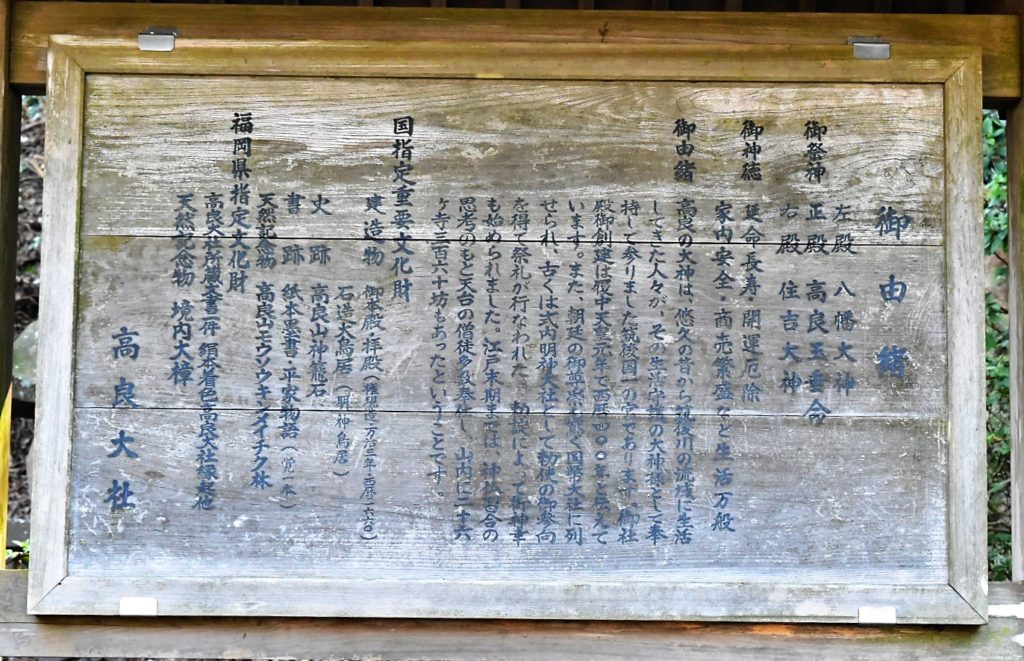 御由緒
御祭神
左殿 八幡大神
正殿 高良玉垂命
右殿 住吉大神
御神徳
延命長寿・開運厄除
家内安全・商売繁盛など生活万般
御由緒
高良の大神は、悠久の昔から筑後川の流域に生活
してきた人々が、その生活守護の大神様として奉
持して参りました筑後国一の宮であります。御社
殿御創建は履中天皇元年で西暦四〇〇年と伝えて
います。また、朝廷の御尊崇も篤く国幣大社に列
せられ、古くは式内明神大社として勅使の御参向
を得て祭礼が行なわれた、勅裁によって御神幸
も始められました。江戸末期までは、神仏習合の
思考のもと天台の僧徒多数奉仕し、山内に二十六
ヶ寺三百六十坊もあったということです。
国指定重要文化財
建造物 御本殿、拝殿(権現造 万治三年 西暦一六六〇)
石造大鳥居(明神鳥居)
史跡 高良山神籠石
書跡 紙本墨書 平家物語(覚一本)
天然記念物 高良山モウソウキンメイチク林
福岡県指定文化財
高良大社所蔵文書弐件 絹本着色高良大社縁起他
天然記念物 境内大樟
高良大社